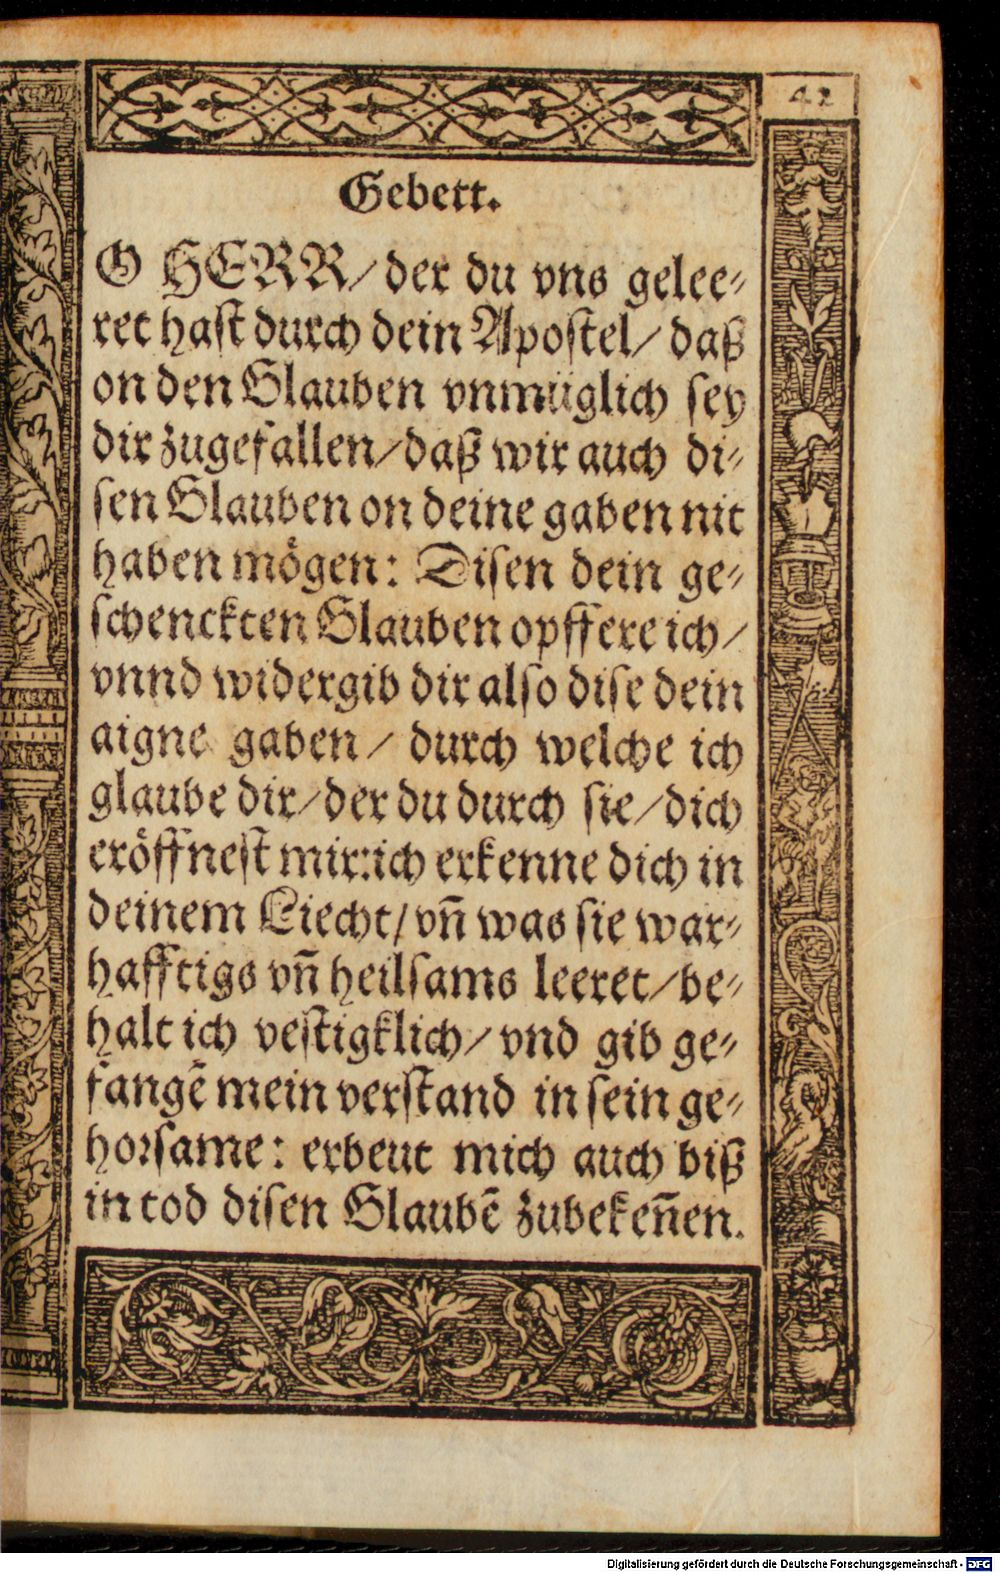 42
Gebett.
O HERR/ der du vns gelee-
ret hast durch dein Apostel/ daß
on den Glauben vnmüglich sey
dir zugefallen/ daß wir auch di-
sen Glauben on deine gaben nit
haben mögen: Disen dein ge-
schenckten Glauben opffere ich/
vnnd widergib dir also dise dein
aigne gaben/ durch welche ich
glaube dir/ der du durch sie/ dich
eröffnest mir: ich erkenne dich in
deinem Liecht/ vn̄ was sie war-
hafftigs vn̄ heilsams leeret/ be-
halt ich vestigklich/ vnd gib ge-
fangē mein verstand in sein ge-
horsame: erbeut mich auch biß
in tod disen Glaubē zubeken̄en.
Digitalisierung gefördert durch die Deutsche Forschungsgemeinschaft - DFG